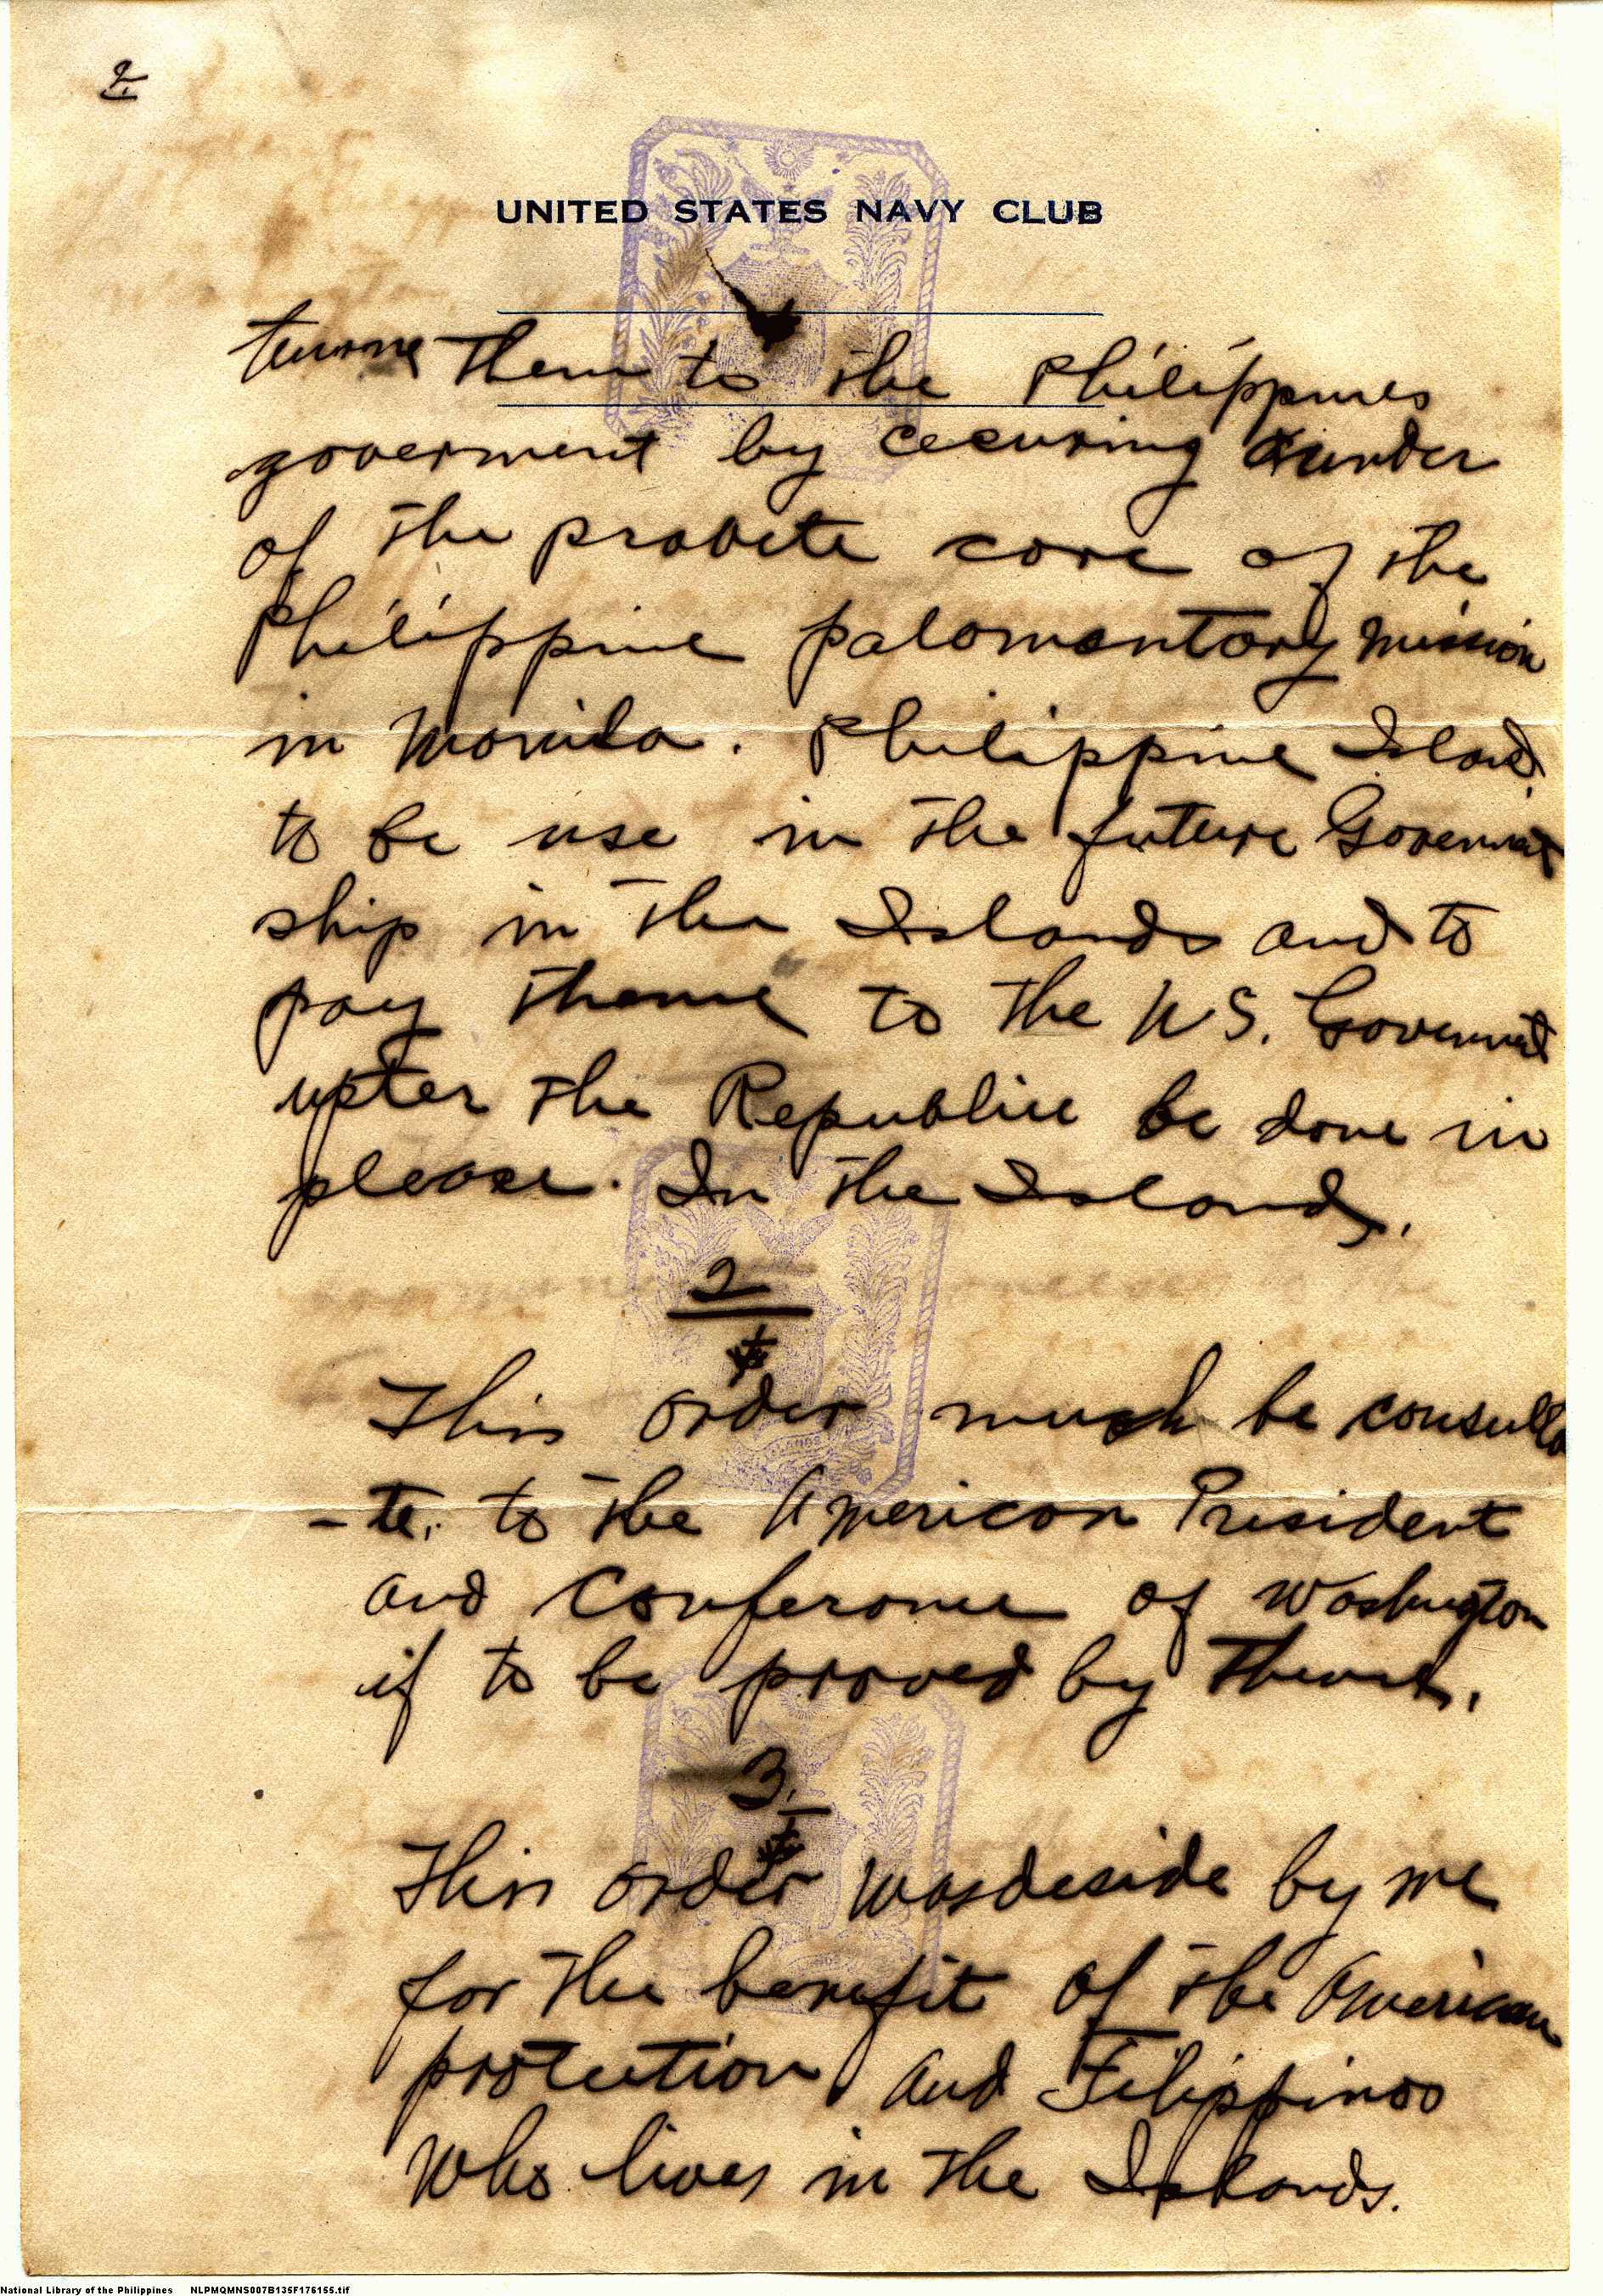 2.
UNITED STATES NAVY CLUB
them to the Philippines
goverment by cecuring under
of the probete core of the
Philippine palamentory mission
in Manila. Philippine Island.
to be use in the future Goverment
ship in the Islands and to
pay theme to the U S. Goverment
upter the Republic be done in
please. In the Islands.
2
This order much be consulta
-te. to the American President
and Conference of Washington
if to be proved by theme.
3.
This order was deside by me
for the benefit of the American
protection and Filippinos
who lives in the Islands.
National Library of the Philippines NLPMQMNS007B135F176155.tif